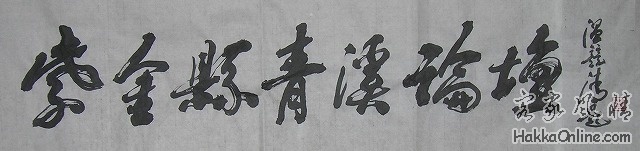 紫金縣青溪論壇
客家風情
HakkaOnline.com